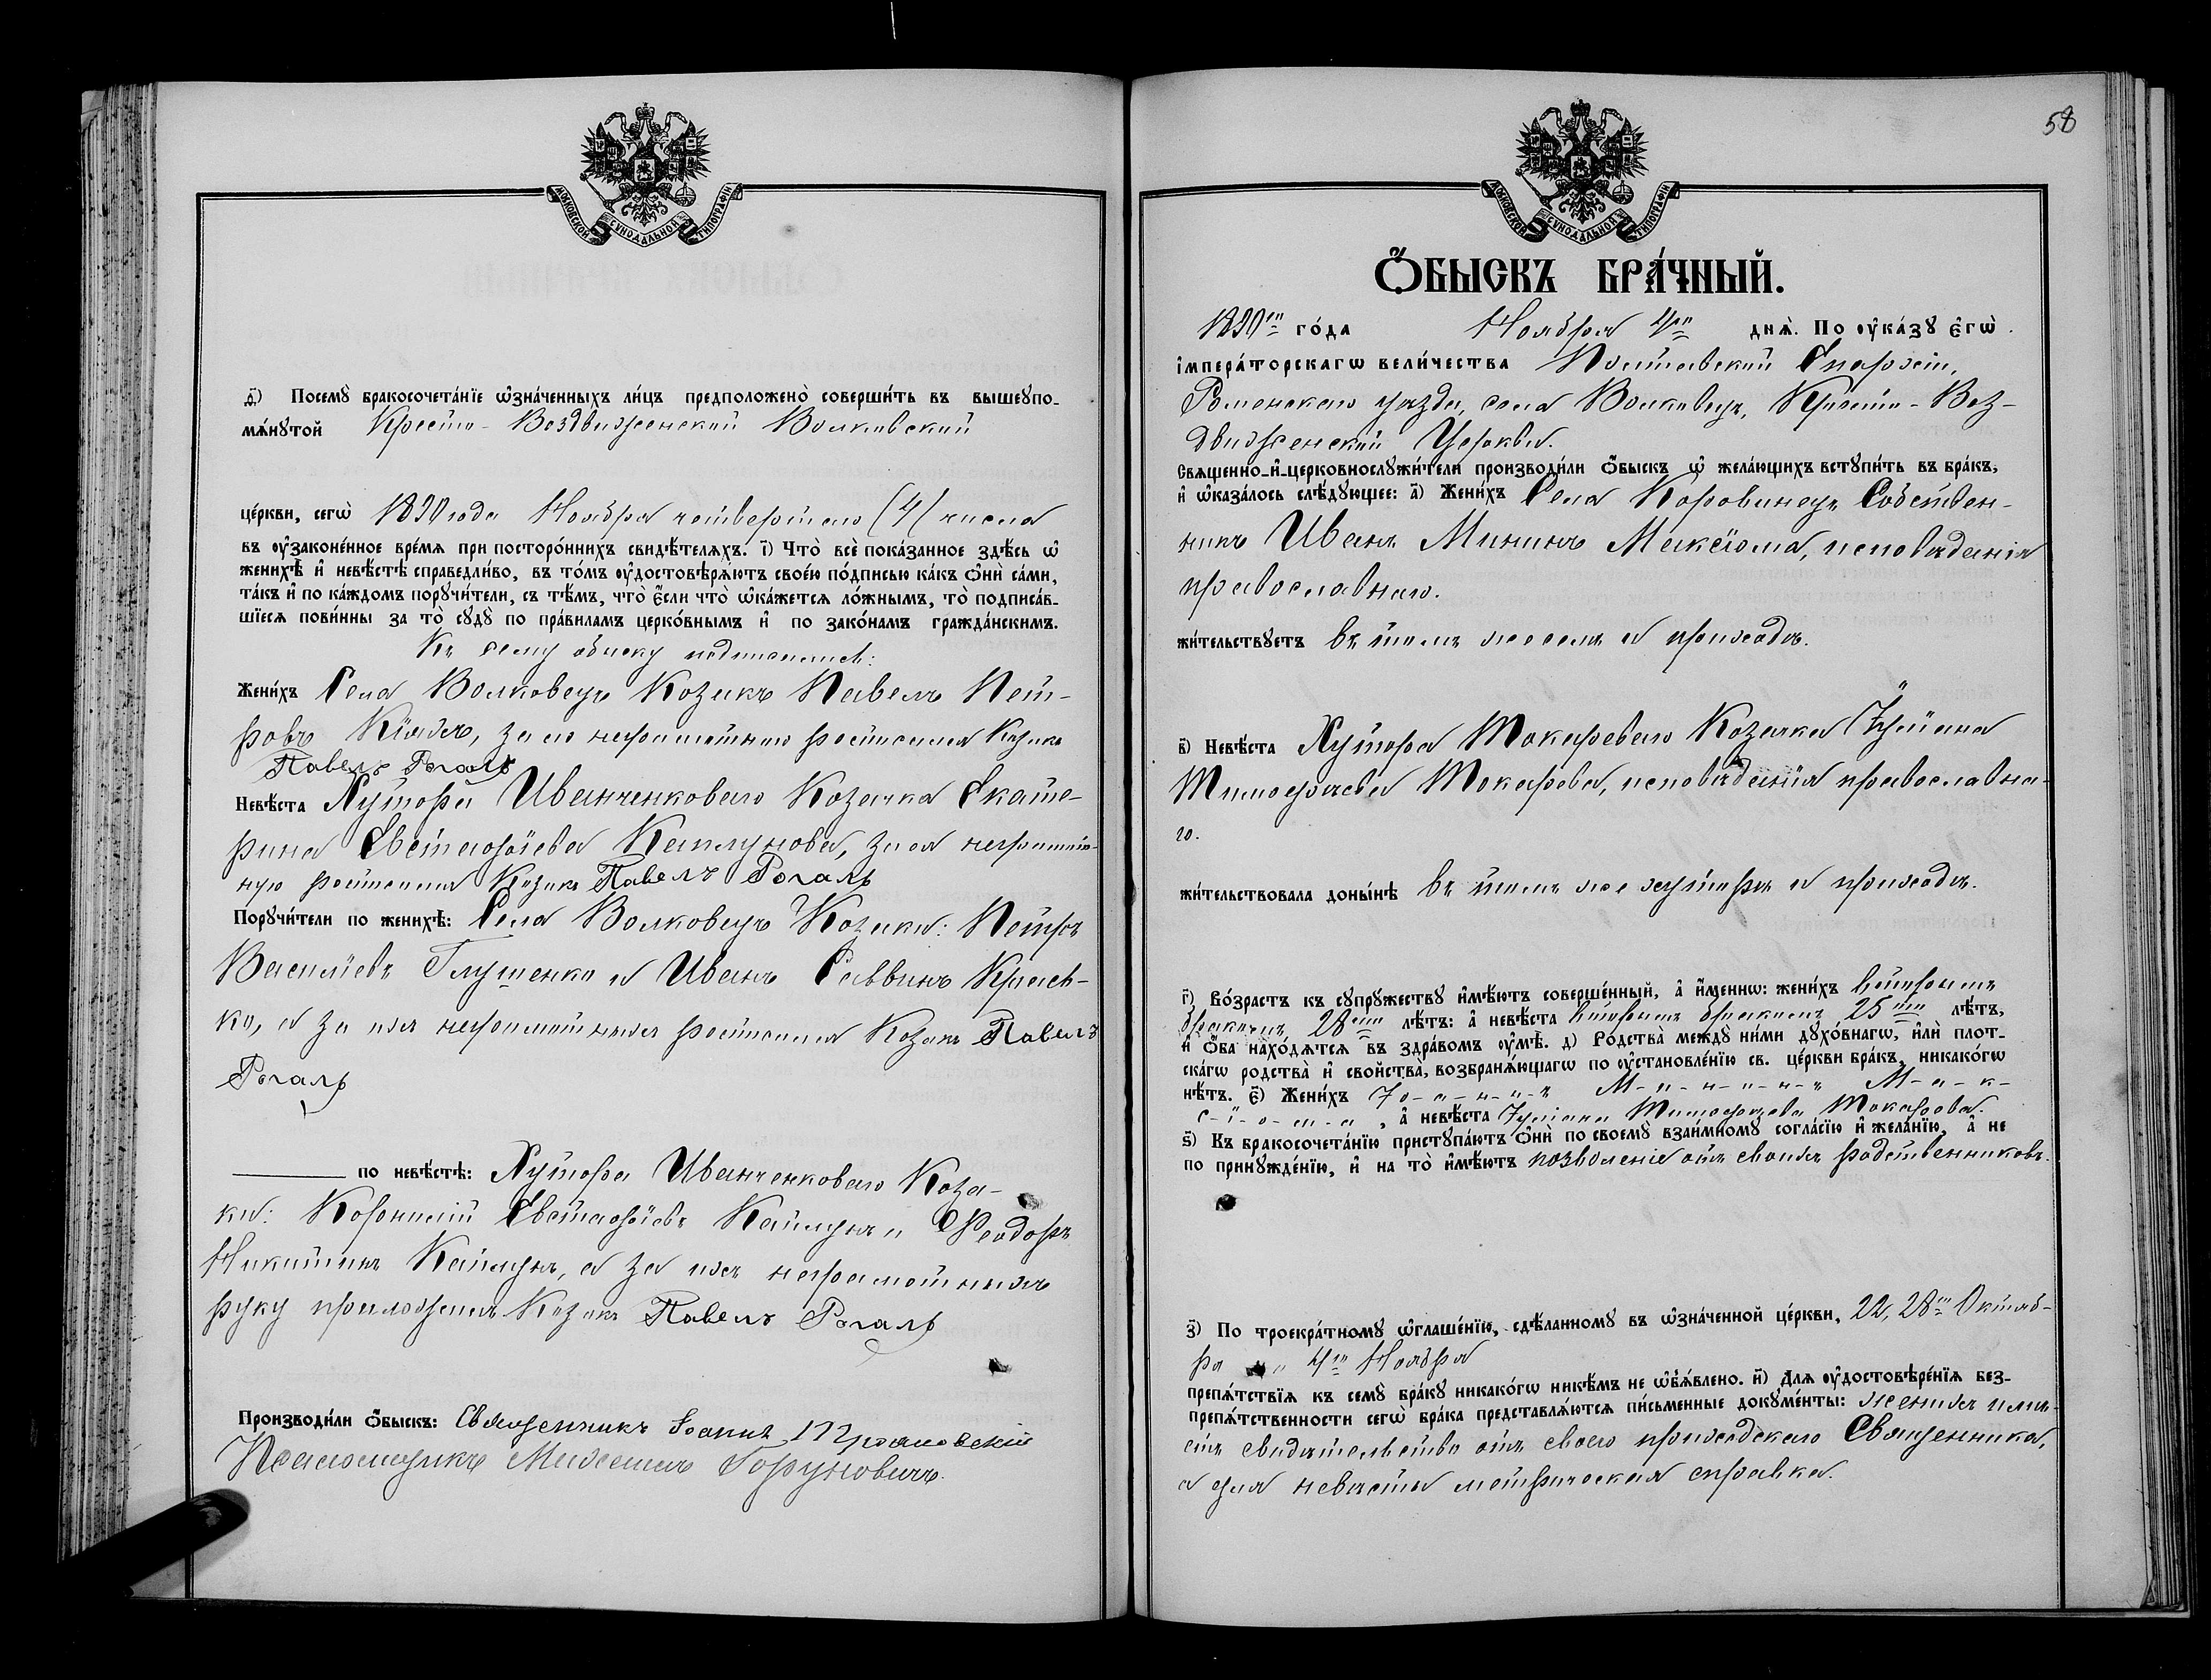 МОСКОВСКОЙ СУНОДАЛЬНОЙ ТИПОГРАФІИ
д҃) Посемꙋ̀ бракосочета́нїе ѡ҆зна́ченныхъ ли́цъ предположено̀ соверши́ть въ вышеꙋпо-
мѧ́нꙋтой Кресто-Воздвиженской Волковской
це́ркви, сегѡ̀ 1890 года Ноября четвертаго (4) числа
въ ᲂу҆законе́нное вре́мѧ при посторо́ннихъ свидѣ́телѧхъ. і҃) Что̀ всѐ пока́занное здѣ́сь ѡ҆
женихѣ̀ и҆ невѣ́стѣ справедли́во, въ то́мъ ᲂу҆достовѣрѧ́ютъ свое́ю по́дписью ка́къ ѻ҆нѝ са́ми,
та́къ и҆ по ка́ждомъ порꙋчи́тели, съ тѣ́мъ, что̀ є҆́сли что̀ ѡ҆ка́жетсѧ ло́жнымъ, то̀ подписа́в-
шїесѧ пови́нны за то̀ сꙋдꙋ̀ по пра́виламъ церко́внымъ и҆ по зако́намъ гражда́нскимъ.
Къ сему обыску подписались:
Жени́хъ Села Волковецъ Козакъ Павелъ Пет-
ровъ за его неграмотнаго росписался Козакъ
Павелъ Рогаль
Невѣ́ста Хутора Иванченковаго Козачка Екате-
рина Евстафіева Каплунова, за ея неграмот-
ную росписался Козакъ Павелъ Рогаль
Порꙋчи́тели по женихѣ̀: Села Волковецъ Козаки: Петръ
Василіевъ Глущенко и Иванъ Саввинъ Крась-
ко, а за ихъ неграмотныхъ росписался Козакъ Павелъ
Рогаль
по невѣ́стѣ: Хутора Иванченковаго Коза-
ки: Корнилій Евстафіевъ Каплунъ и Ѳеодоръ
Никитинъ Каплунъ, а за ихъ неграмотныхъ
руку приложилъ Козакъ Павелъ Рогаль
Производи́ли ѻ҆́быскъ: Священникъ Іоаннъ
Псаломщикъ Михаилъ Горуновичъ.
58
МОСКОВСКОЙ СУНОДАЛЬНОЙ ТИПОГРАФІИ
Ѻ҆́БЫСКЪ БРА́ЧНЫЙ.
1890го го́да Ноября 4го днѧ̀. По ᲂу҆ка́зꙋ є҆гѡ̀
і҆мпера́торскагѡ вели́чества Полтавской Епархіи,
Роменскаго уѣзда, села Волковецъ, Кресто-Воз-
движенской Церкви.
Свѧще́нно-и҆-церковнослꙋжи́тели производи́ли ѻ҆́быскъ ѡ҆ жела́ющихъ встꙋпи́ть въ бра́къ,
и҆ ѡ҆каза́лось слѣ́дꙋющее: а҃) Жени́хъ Села Коровинецъ Собствен-
никъ Иванъ Мининъ Максіома, исповѣданія
православнаго.
жи́тельствꙋетъ въ томъ же селѣ и приходѣ.
в҃) Невѣ́ста Хутора Токареваго Козачка Іуліана
Тимофѣева Токарева, исповѣданія православна-
го.
жи́тельствовала доны́нѣ въ томъ же хуторѣ и приходѣ.
г҃) Во́зрастъ къ сꙋпрꙋ́жествꙋ и҆мѣ́ютъ соверше́нный, а҆ и҆́меннѡ: жени́хъ вторымъ
бракомъ 28ми лѣ́тъ: а҆ невѣ́ста вторымъ бракомъ 25ти лѣ́тъ,
и҆ ѻ҆́ба нахо́дѧтсѧ въ здра́вомъ ᲂу҆мѣ̀. д҃) Ро́дства междꙋ̀ ни́ми дꙋхо́внагѡ, и҆лѝ плот-
ска́гѡ родства̀ и҆ сво́йства̀, возбранѧ́ющагѡ по ᲂу҆становле́нїю св. це́ркви бра́къ, никако́гѡ
нѣ́тъ. є҃) Жени́хъ І о-а-н-н-ъ М-и-н-и-н-ъ М-а-к-
с-і-о-м-а, а҆ невѣ́ста Іуліана Тимофѣева Токарева.
ѕ҃) Къ бракосочета́нїю пристꙋпа́ютъ ѻ҆нѝ по своемꙋ̀ взаи́мномꙋ согла́сїю и҆ жела́нїю, а҆ не
по принꙋжде́нїю, и҆ на то̀ и҆мѣ́ютъ позволеніе отъ своихъ родственниковъ.
з҃) По троекра́тномꙋ ѡ҆глаше́нїю, сдѣ́ланномꙋ въ ѡ҆зна́ченной це́ркви, 22, 28го Октяб-
ря и 4го Ноября
препѧ́тствїѧ къ семꙋ̀ бра́кꙋ никако́гѡ никѣ́мъ не ѡ҆б̾ѧ́влено. и҃) Для ᲂу҆достовѣре́нїѧ без-
препѧ́тственности сегѡ̀ бра́ка представлѧ́ютсѧ пи́сьменные докꙋме́нты: женихъ имѣ-
етъ свидѣтельство отъ своего приходскаго Священника,
а для невѣсты метрическая справка.